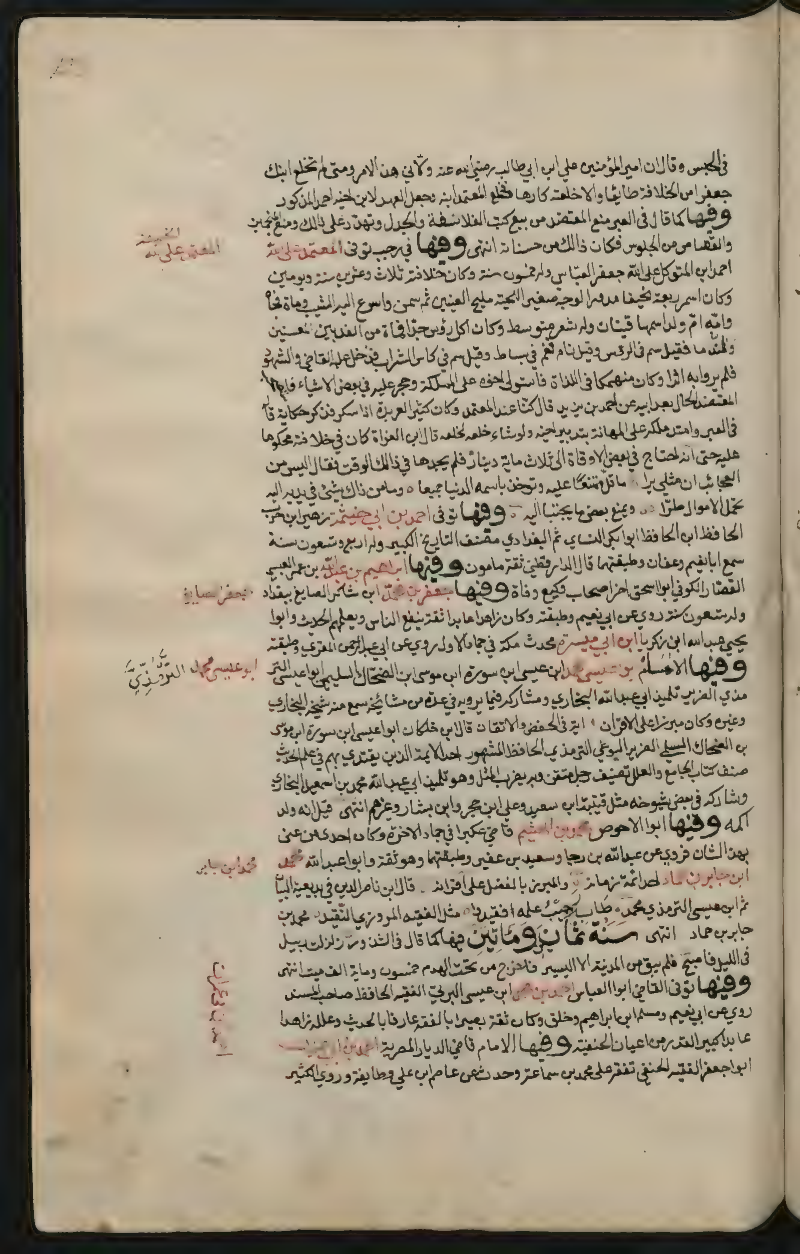 في الحبس وقال ان امير المؤمنين علي ابن ابي طالب رضي الله عنه ولاني هذا الامر ومتى لم تخلع ابنك
جعفر امن الخلافة طايعا والا خلعته كارها فخلع المعتمد ابنه وجعل العهد لابن اخيه احمد المذكور
وفيها كما قال في العبر منع المعتضد من بيع كتب الفلاسفة والجدل وتهدد على ذلك ومنع المنجمين
والقصاص من الجلوس فكان ذالك من حسناته انتهى وفيها في رجب توفى المعتمد على الله
احمد ابن المتوكل على الله جعفر العباسي وله خمسون سنة وكان خلافته ثلاث وعشرين سنة ويومين
وكان اسمر ربعة نحيفا مدور الوجه صغير اللحية مليح العينين ثم سمن واسرع اليه الشيب ومات فجأ
وامه ام ولد اسمها فتيان وله شعر متوسط وكان اكل رؤس جدا فمات من الغد بين المغنين
والندما فقيل سم في الروس وقيل نام فغم في بساط وقيل سم في كاس الشراب فدخل عليه القاضي والشهو
فلم يروا به اثرا وكان منهمكا في اللذات فاستولى اخوه على المملكة وحجر عليه في بعض الاشياء
المعتضد الحال بعد ابيه عن احمد بن يزيد قال كنا عند المعتمد وكان كثير العربدة اذا سكر فذكر حكاية قا
في العبر وامتد ملكه على المهانة بتدبير اخيه ولو شاء خلعه لخلعه قال ابن الفرات كان في خلافته محكوما
عليه حتى انه احتاج في بعض الاوقات الى ثلاث ماية دينار فلم يجدها في ذالك الوقت فقال اليس من
العجائب ان مثلي يرا ما قل ممتنعا عليه وتوخذ باسمه الدنيا جميعا وما من ذاك شئ في يديه اليه
تحمل الاموال طرا ويمنع بعض ما يجبا اليه وفيها توفى احمد بن ابي خيثمة زهير ابن حرب
الحافظ ابن الحافظ ابو بكر النساي ثم البغدادي مصنف التاريخ الكبير وله اربع وتسعون سنة
سمع ابا نعيم وعفان وطبقتهما قال الدارقطني ثقة مامون وفيها ابراهيم بن عبد الله بن عمر العبسي
القصار الكوفي ابو اسحق اخر اصحاب وكيع وفاة وفيها جعفر بن محمد ابن شاكر الصايغ ببغداد
وله تسعون سنة روي عن ابي نعيم وطبقته وكان زاهدا عابدا ثقة ينفع الناس ويعلمهم الحديث وابوا
يحيى عبد الله ابن زكريا ابن ابي ميسرة محدث مكة في جماد الاولى روي عن ابي عبد الرحمن المقري وطبقته
وفيها الامام ابو عيسى محمد ابن عيسى ابن سورة ابن موسى ابن الضحاك السليمي ابو عيسى التر
مذي الضرير تلميذ ابي عبد الله البخاري ومشاركه فيما يرويه في عدة من مشايخه سمع منه شيخه البخاري
وغيره وكان مبرزا على الاقران اية في الحفض والاتقان قال ابن خلكان ابو عيسى ابن سورة ابن موسى
بن الضحاك السلمي الضرير البوغي الترمذي الحافظ المشهور احد الايمة الذين يقتدى بهم في علم الحديث
صنف كتاب الجامع والعلل تصنيف رجل متقن وبه يضرب المثل وهو تلميذ ابي عبد الله محمد بن اسمعيل البخاري
وشاركه في بعض شيوخه مثل قتيبة ابن سعيد وعلي ابن حجر وابن بشار وغيرهم انتهى قيل انه ولد
اكمه وفيها ابوا الاحوص محمد بن الهيثم قاضي عكبرا في جماد الاخرة وكان احد من عنى
بهذا الشان فروي عن عبد الله بن رجا وسعيد بن عفير وطبقتهما وهو ثقة وابو عبد الله محمد
ابن جابر بن حماد احد ائمة زمانه والمبرز بالفضل على اقرانه قال ابن ناصر الدين في بديعية البيا
ثم ابن عيسى الترمذي محمد طاب رحب علمه فقيد مثل الفقيه المروزي الثقيد محمد بن
جابر بن حماد انتهى سنة ثمان ومأتين فيها كما قال في الشذور زلزلت دبيل
في الليل فاصبح فلم يبق من المدينة الا اليسير فاخرج من تحت الهدم خمسون وماية الف ميت انتهى
وفيها توفى القاضي ابوا العباس احمد بن محمد ابن عيسى البرتي الفقيه الحافظ صاحب المسند
روي عن ابي نعيم ومسلم ابن ابراهيم وخلق وكان ثقة بصيرا بالفقه عارفا بالحديث وعلله زاهدا
عابدا كبير القدر من اعيان الحنفية وفيها الامام قاضي الديار المصرية احمد بن ابي عمران
ابوا جعفر الفقيه الحنفي تفقه على محمد بن سماعة وحدث عن عاصم ابن علي وطايفة وروي الكثير
الخليفة
المعتمد على الله
جعفر الصايغ
ابو عيسى محمد الترمذي
محمد ابن جابر
احمد ابن ابي عمران